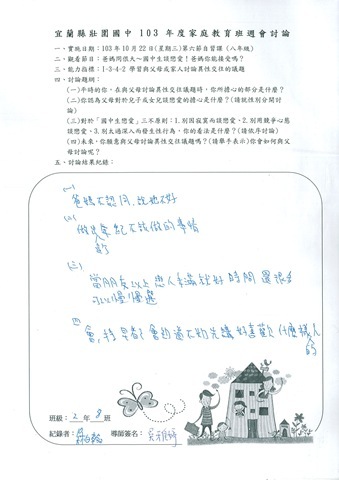 宜蘭縣壯圍國中 103 年度家庭教育班週會討論
一、實施日期：103 年 10 月 22 日(星期三)第六節自習課（八年級）
二、觀看節目：爸媽問很大～國中生談戀愛！爸媽你能接受嗎？
三、能力指標：1-3-4-2 學習與父母或家人討論異性交往的議題
四、討論題綱：
(一)平時的你，在與父母討論異性交往議題時，你所擔心的部分是什麼？
(二)你認為父母對於兒子或女兒談戀愛的擔心是什麼？(請就性別分開討
論)
(三)對於「國中生戀愛」三不原則：1.別因寂寞而談戀愛、2.別用競爭心態
談戀愛、3.別太過深入而發生性行為，你的看法是什麼？(請依序討論)
(四)未來，你願意與父母討論異性交往議題嗎？(請舉手表示)你會如何與父
母討論呢？
五、討論結果紀錄：
(一)
爸媽不認同,
(二)
做出 不該做的事情
(三)
當朋友以上 戀人未滿 就好 時間還很多
可以慢慢選
四 會,
喜歡什麼樣
的人
班級：2 年 8 班
紀錄者：
導師簽名：